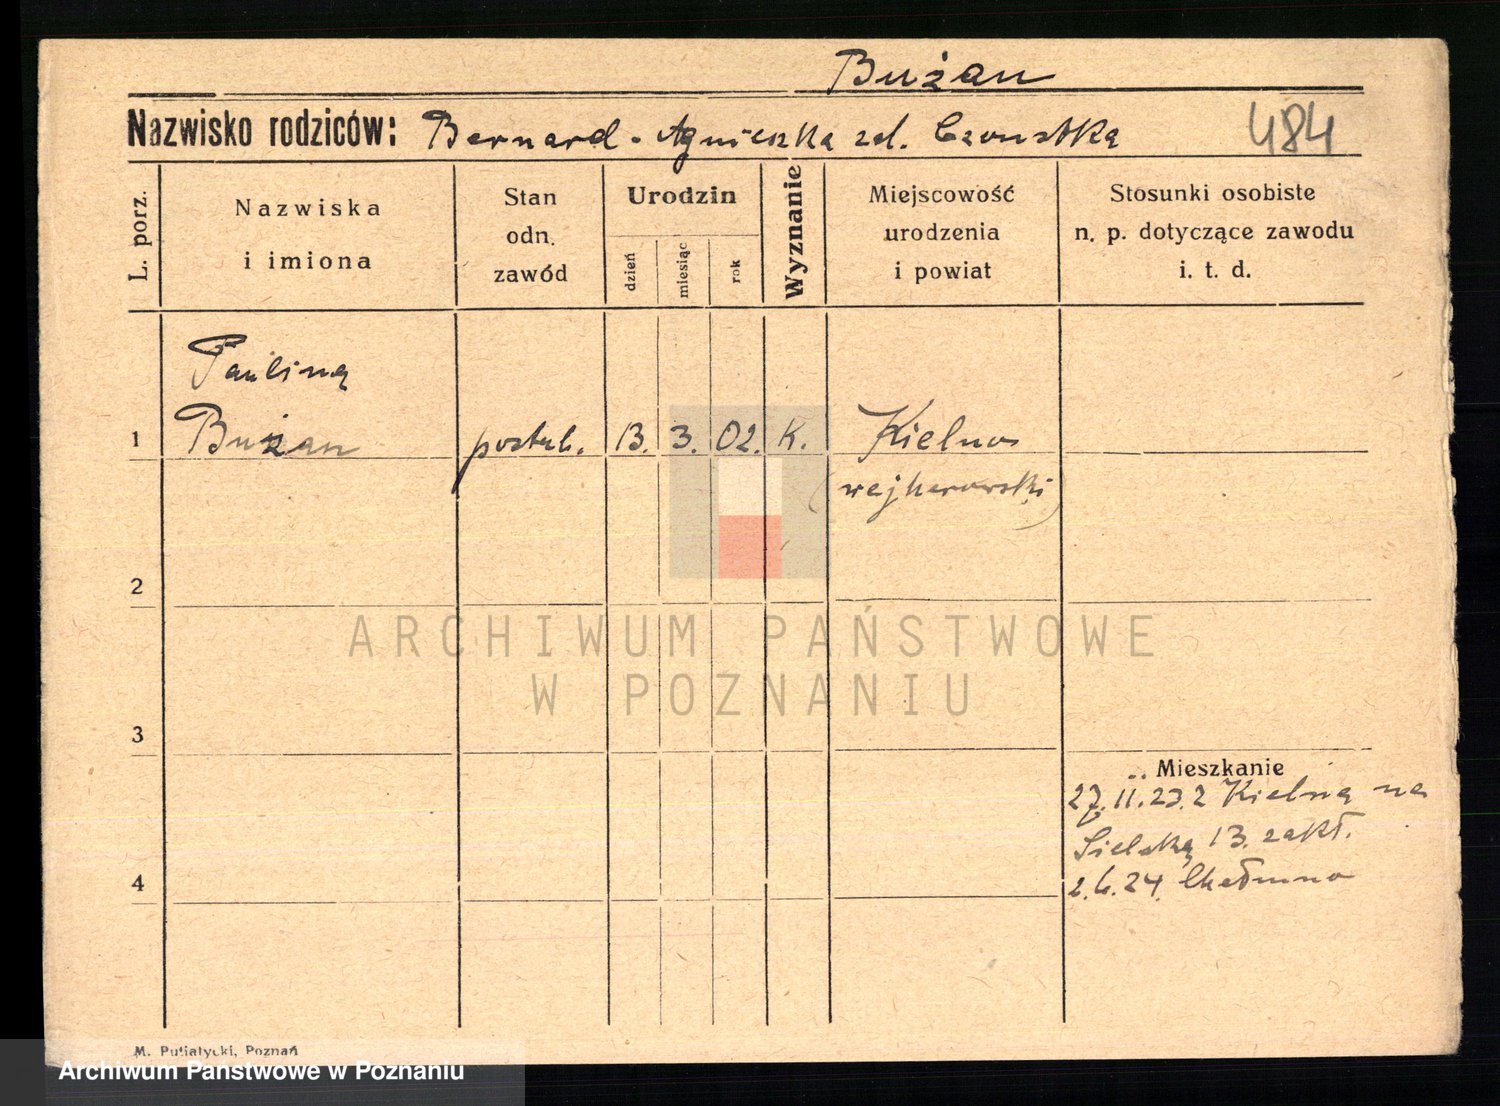 Bużan
Nazwisko rodziców: Bernard - Agnieszka zd. 484
L. porz.
Nazwiska
i imiona
Stan
odn.
zawód
Urodzin
dzień
miesiąc
rok
Wyznanie
Miejscowość
urodzenia
i powiat
Stosunki osobiste
n. p. dotyczące zawodu
i. t. d.
Paulina
1 Bużan postul. 13. 3. 02. K. Kielno
(wejherowski)
2
3
Mieszkanie
27.11.23. z Kielna na
Sielską 13. zakł.
4
2.6.24. Chełmno
ARCHIWUM PAŃSTWOWE
W POZNANIU
M. Putiatycki, Poznań
Archiwum Państwowe w Poznaniu